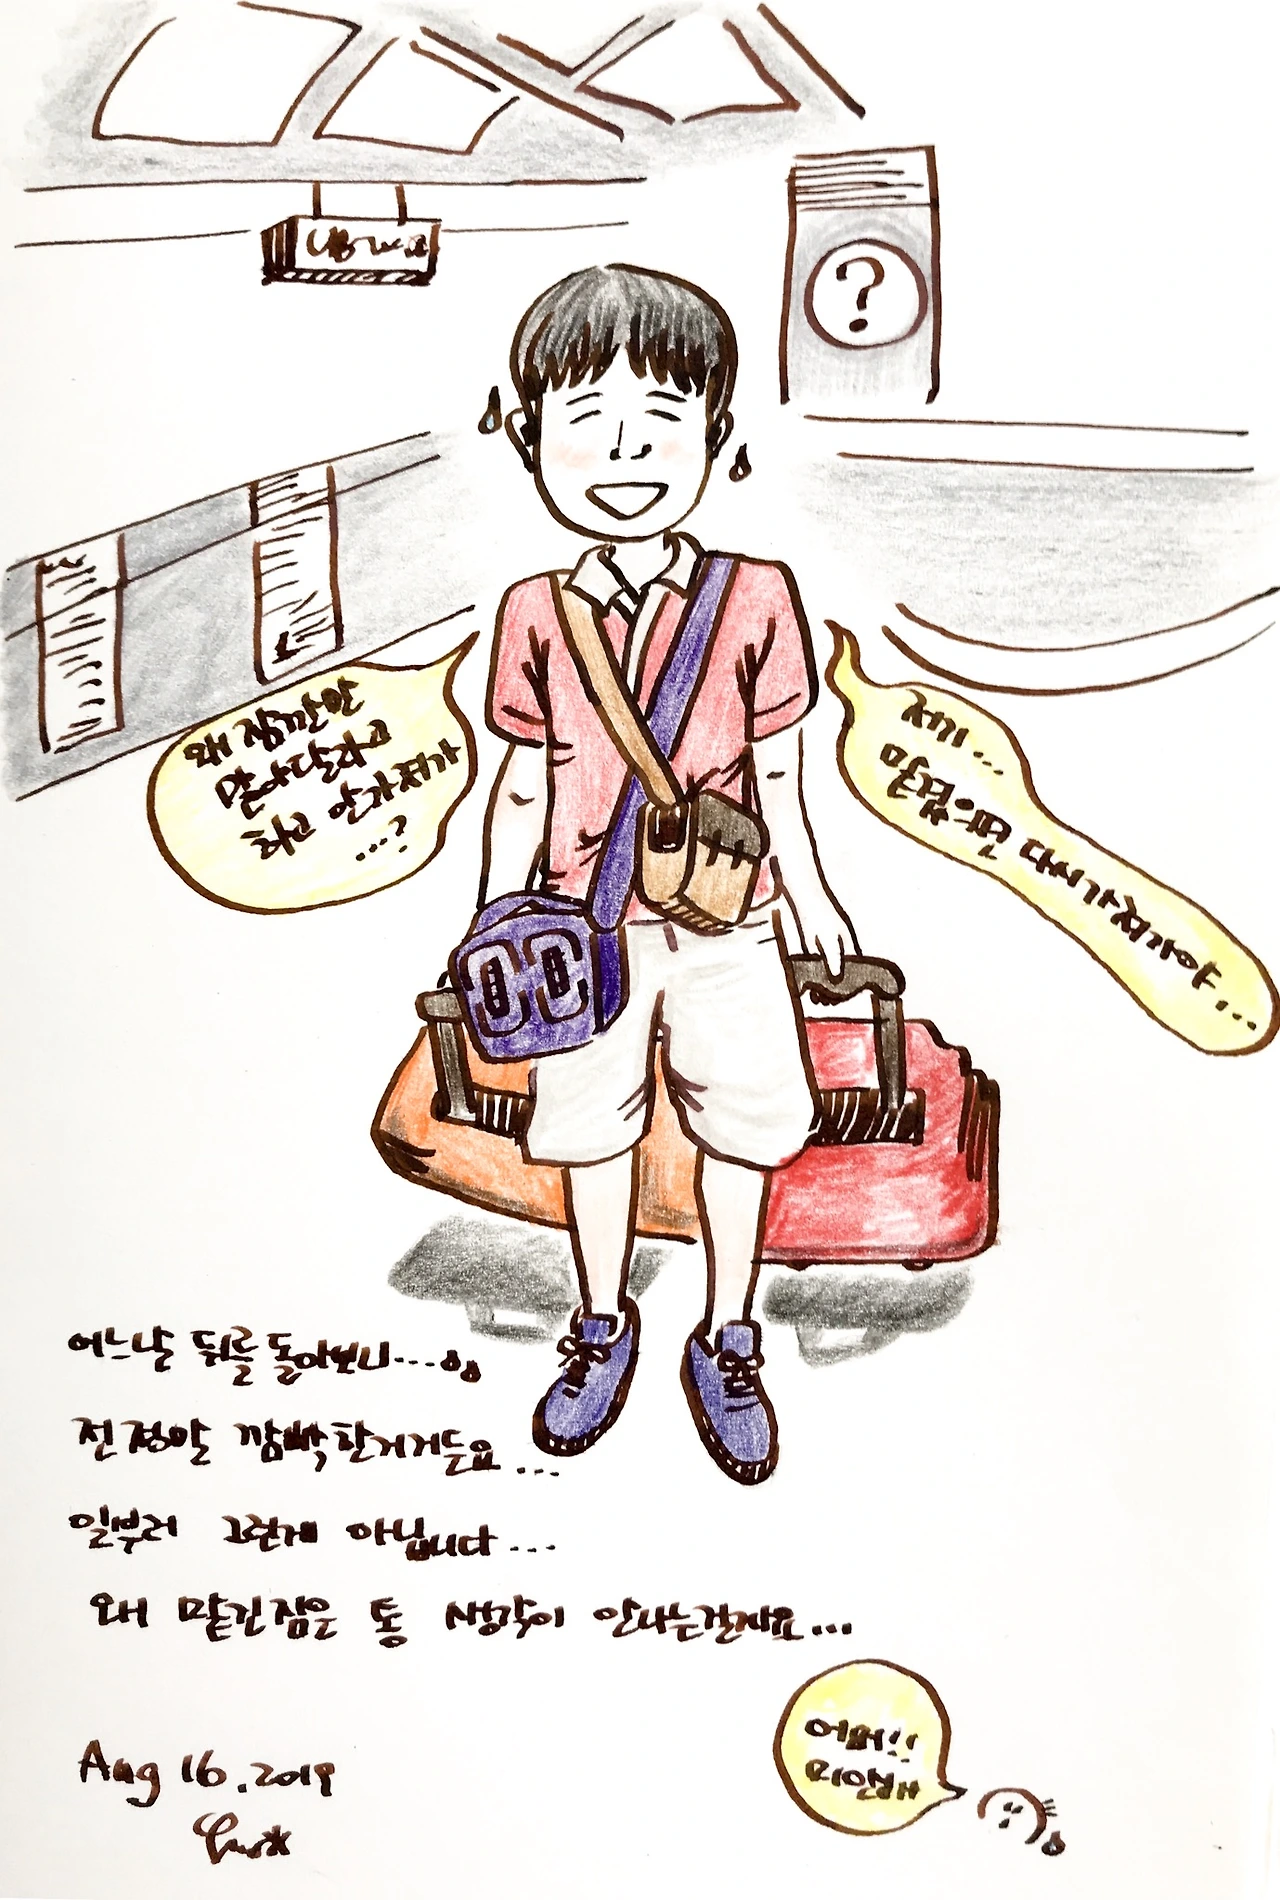 ?
왜 잠깐만
맡아달라고
하고 안가져가
...?
저기...
뭅겁우면 다시가져가야...
어느날 뒤를 돌아보니...
전 정말 깜빡한거거든요...
일부러 그런게 아닙니다...
왜 맡긴짐은 통 생각이 안나는걸까요...
Aug 16.2019
어머!!
미안해